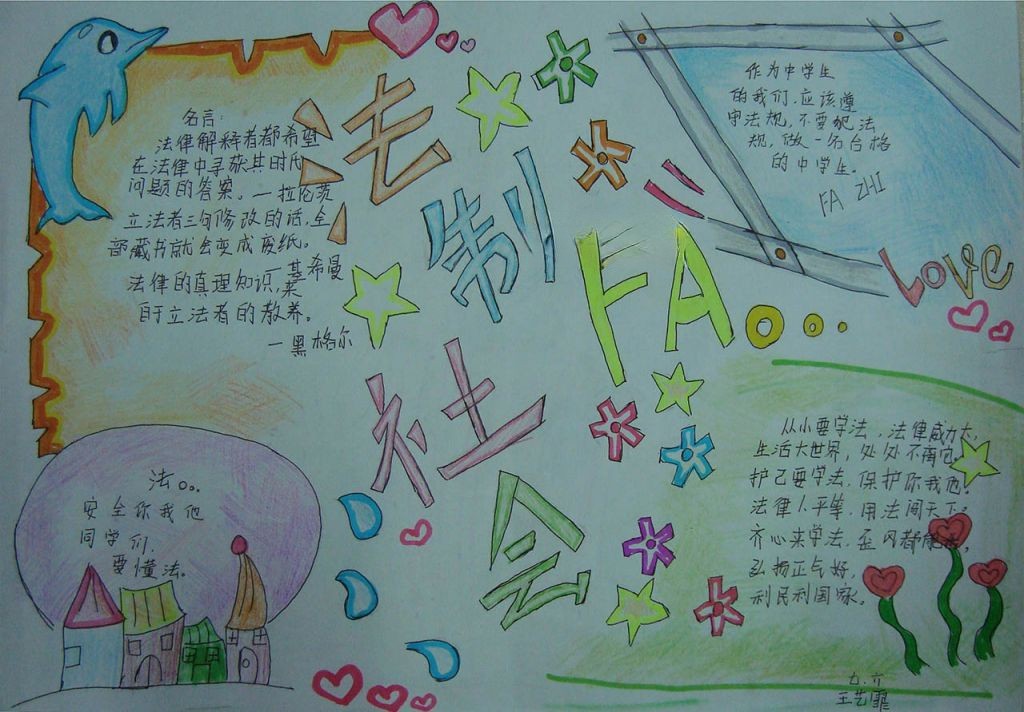 名言:
法律解释者都希望
在法律中寻获其时代
问题的答案。一拉伦茨
立法者三句修改的话,全
部藏书就会变成废纸。
一基希曼
法律的真理知识,来
自于立法者的教养。
一黑格尔
法制
社会
FA
作为中学生
的我们,应该遵
守法规,不要犯法
规,做一名合格
的中学生。
FA ZHI
Love
法。。。
安全你我他
同学们,
要懂法。
从小要学法,法律威力大,
生活大世界,处处不离它。
护己要学法,保护你我他。
法律人平等,用法闯天下。
齐心来学法,
弘扬正气好,
利民利国家。
九.六
王艺霏